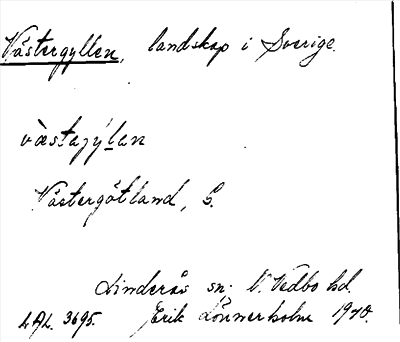 Västergyllen, landskap i Sverige.
västajylan
Västergötland, S.
Linderås sn. N. Vedbo hd.
LAL. 3695. Erik Lönnerholm 1940.